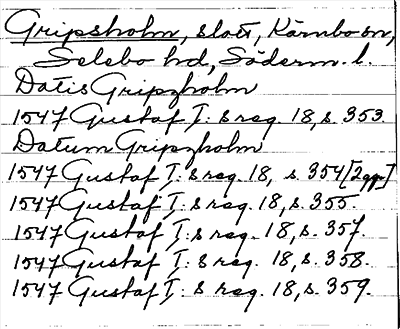 Gripsholm, slott, Kärnbo sn,
Selebo hd, Söderm. l.
Datis Gripzholm
1547 Gustaf I: s reg. 18, s. 353.
Datum Gripzholm
1547 Gustaf I: s reg. 18, s. 354 [2 ggr]
1547 Gustaf I: s reg. 18, s. 355.
1547 Gustaf I: s reg. 18, s. 357.
1547 Gustaf I: s reg. 18, s. 358.
1547 Gustaf I: s reg. 18, s. 359.